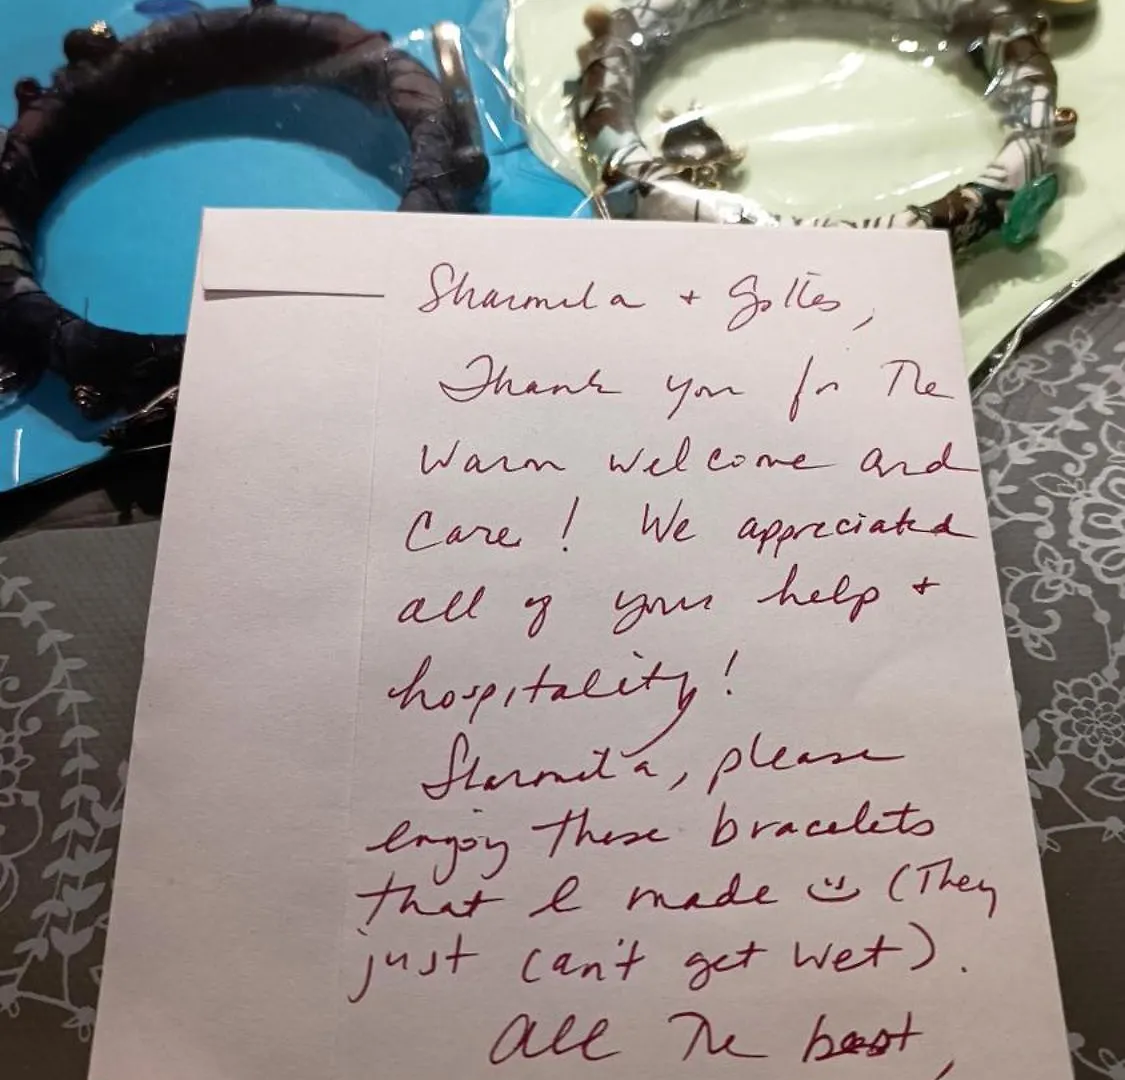 Sharmila +
Thank you for The
warm welcome and
care! We appreciated
all of your help +
hospitality!
Sharmila, please
enjoy these bracelets
that I made (They
just can't get wet).
All The best,